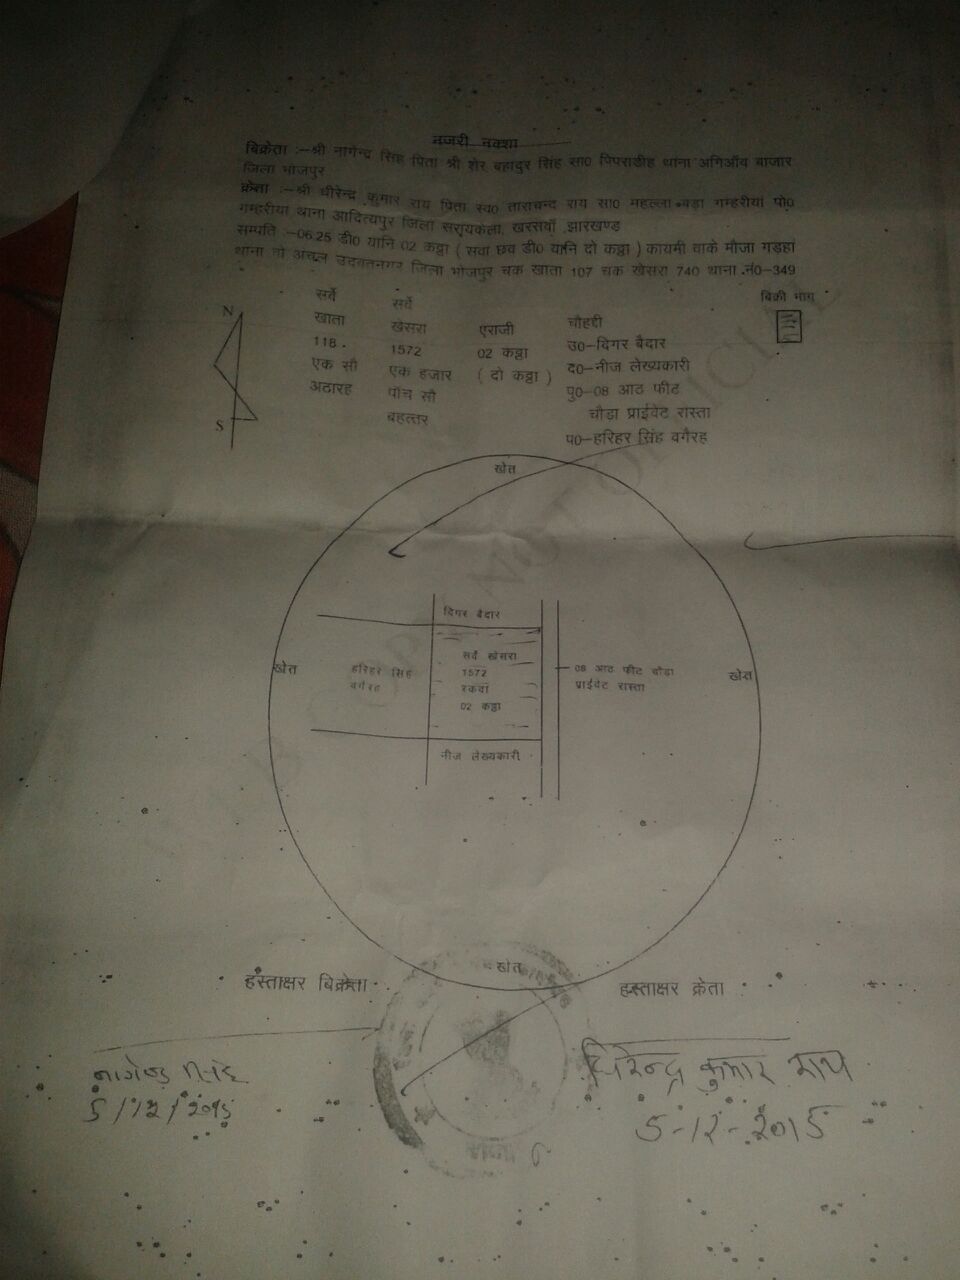 नजरी नक्शा
बिक्रेता :-श्री नागेन्द्र सिंह पिता श्री शेर बहादुर सिंह सा0 पिपराडीह थाना अगिऑव बाजार
जिला भोजपुर
क्रेता :-श्री धीरेन्द्र कुमार राय पिता स्व0 ताराचन्द राय सा0 महल्ला बड़ा गम्हरीयां पो0
गम्हरीया थाना आदित्यपुर जिला सरायकेला, खरसवॉ झारखण्ड
सम्पति :-06.25 डी0 यानि 02 कठ्ठा ( सवा छव डी0 यानि दो कठ्ठा ) कायमी वाके मौजा गड़हा
थाना वो अंचल उदवंतनगर जिला भोजपुर चक खाता 107 चक खेसरा 740 थाना नं0-349
बिक्री भाग
N
S
सर्वे सर्वे
खाता खेसरा एराजी चौहद्दी
118 1572 02 कठ्ठा उ0-दिगर बैदार
एक सौ एक हजार ( दो कठ्ठा ) द0-नीज लेख्यकारी
अठारह पॉच सौ पु0-08 आठ फीट
बहत्तर चौडा प्राईवेट रास्ता
प0-हरिहर सिंह वगैरह
खेत
दिगर बैदार
सर्वे खेसरा
1572
रकवा
02 कठ्ठा
खेत
हरिहर सिंह
वगैरह
08 आठ फीट चौडा
प्राईवेट रास्ता
खेत
नीज लेख्यकारी
खेत
हस्ताक्षर बिक्रेता
हस्ताक्षर क्रेता
नागेन्द्र सिंह
5/12/2015
धिरेन्द्र कुमार राय
5-12-2015